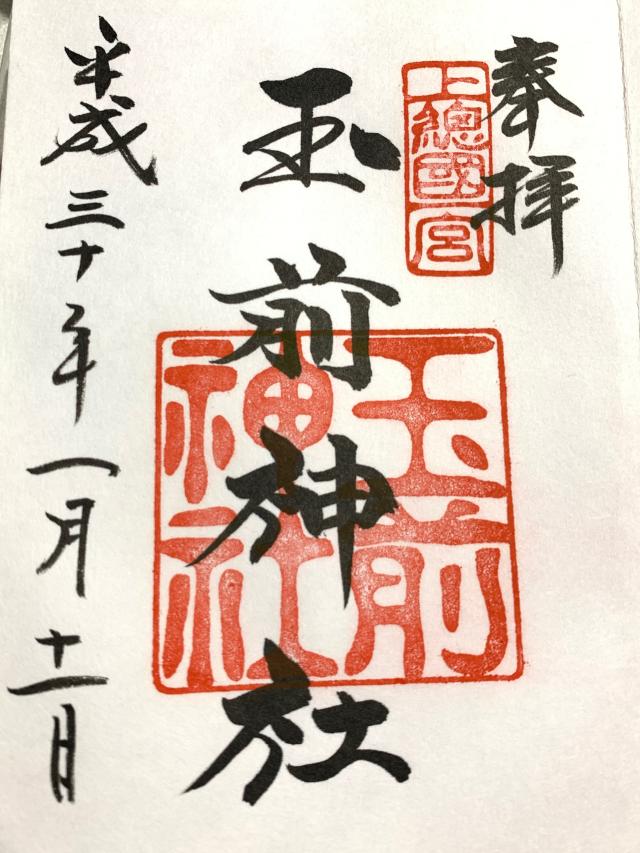 奉拝
上總國一宮
玉前神社
玉前神社
平成三十年一月十一日